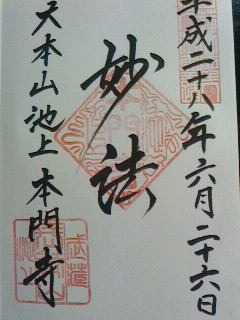 平成二十八年六月二十六日
妙法
大本山池上本門寺